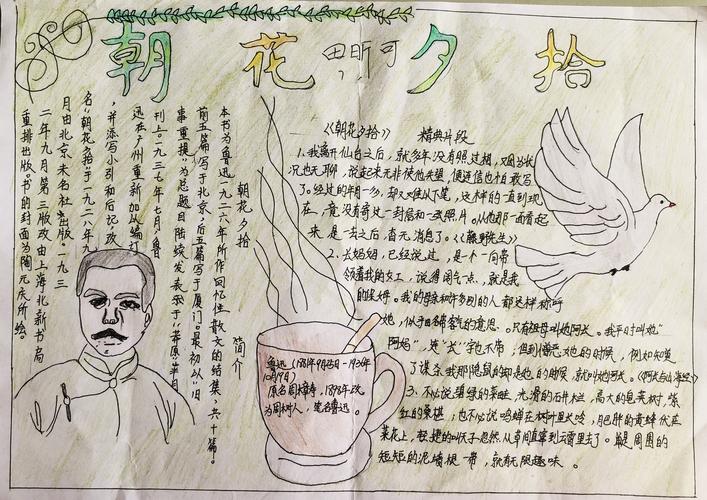 朝花夕拾
田昕可
朝花夕拾 简介
本书为鲁迅一九二六年所作回忆性散文的结集，共十篇。
前五篇写于北京，后五篇写于厦门。最初以"旧
事重提"为总题目陆续发表于"莽原"半月
刊上。一九二七年七月，鲁
迅在广州重新加以编订
，并添写小引和后记，改
名"朝花夕拾"于一九二八年九
月由北京未名社出版。一九三
二年九月第三版改由上海北新书局
重排出版。书的封面为陶元庆所绘。
《朝花夕拾》 精典片段
1、我离开仙台之后，就多年没有照过相，又因为状
况也无聊，说起来无非使他失望，便连信也怕敢写
了。经过的年月一多，却又难以下笔，这样的一直到现
在，竟没有寄过一封信和一张照片。从他那一面看起
来是一去之后，杳无消息了。《藤野先生》
2、长妈妈，已经说过，是一个一向带
领着我的女工，说得阔气一点，就是我
的保姆。我的母亲和许多别的人都这样称呼
她，似乎略带客气的意思。只有祖母叫她阿长。我平时叫她"
阿妈"，连"长"字也不带；但到憎恶她的时候，例如知道
了谋杀我那隐鼠的却是她的时候，就叫她阿长。《阿长与山海经》
3、不必说碧绿的菜畦，光滑的石井栏，高大的皂荚树，紫
红的桑椹；也不必说鸣蝉在树叶里长吟，肥胖的黄蜂伏在
菜花上，轻捷的叫天子忽然从草间直窜到云霄里去了。单是周围的
短短的泥墙根一带，就有无限趣味。
鲁迅（1881年9月25日-1936年
10月19日）
原名周樟寿，1898年改
为周树人，笔名鲁迅。